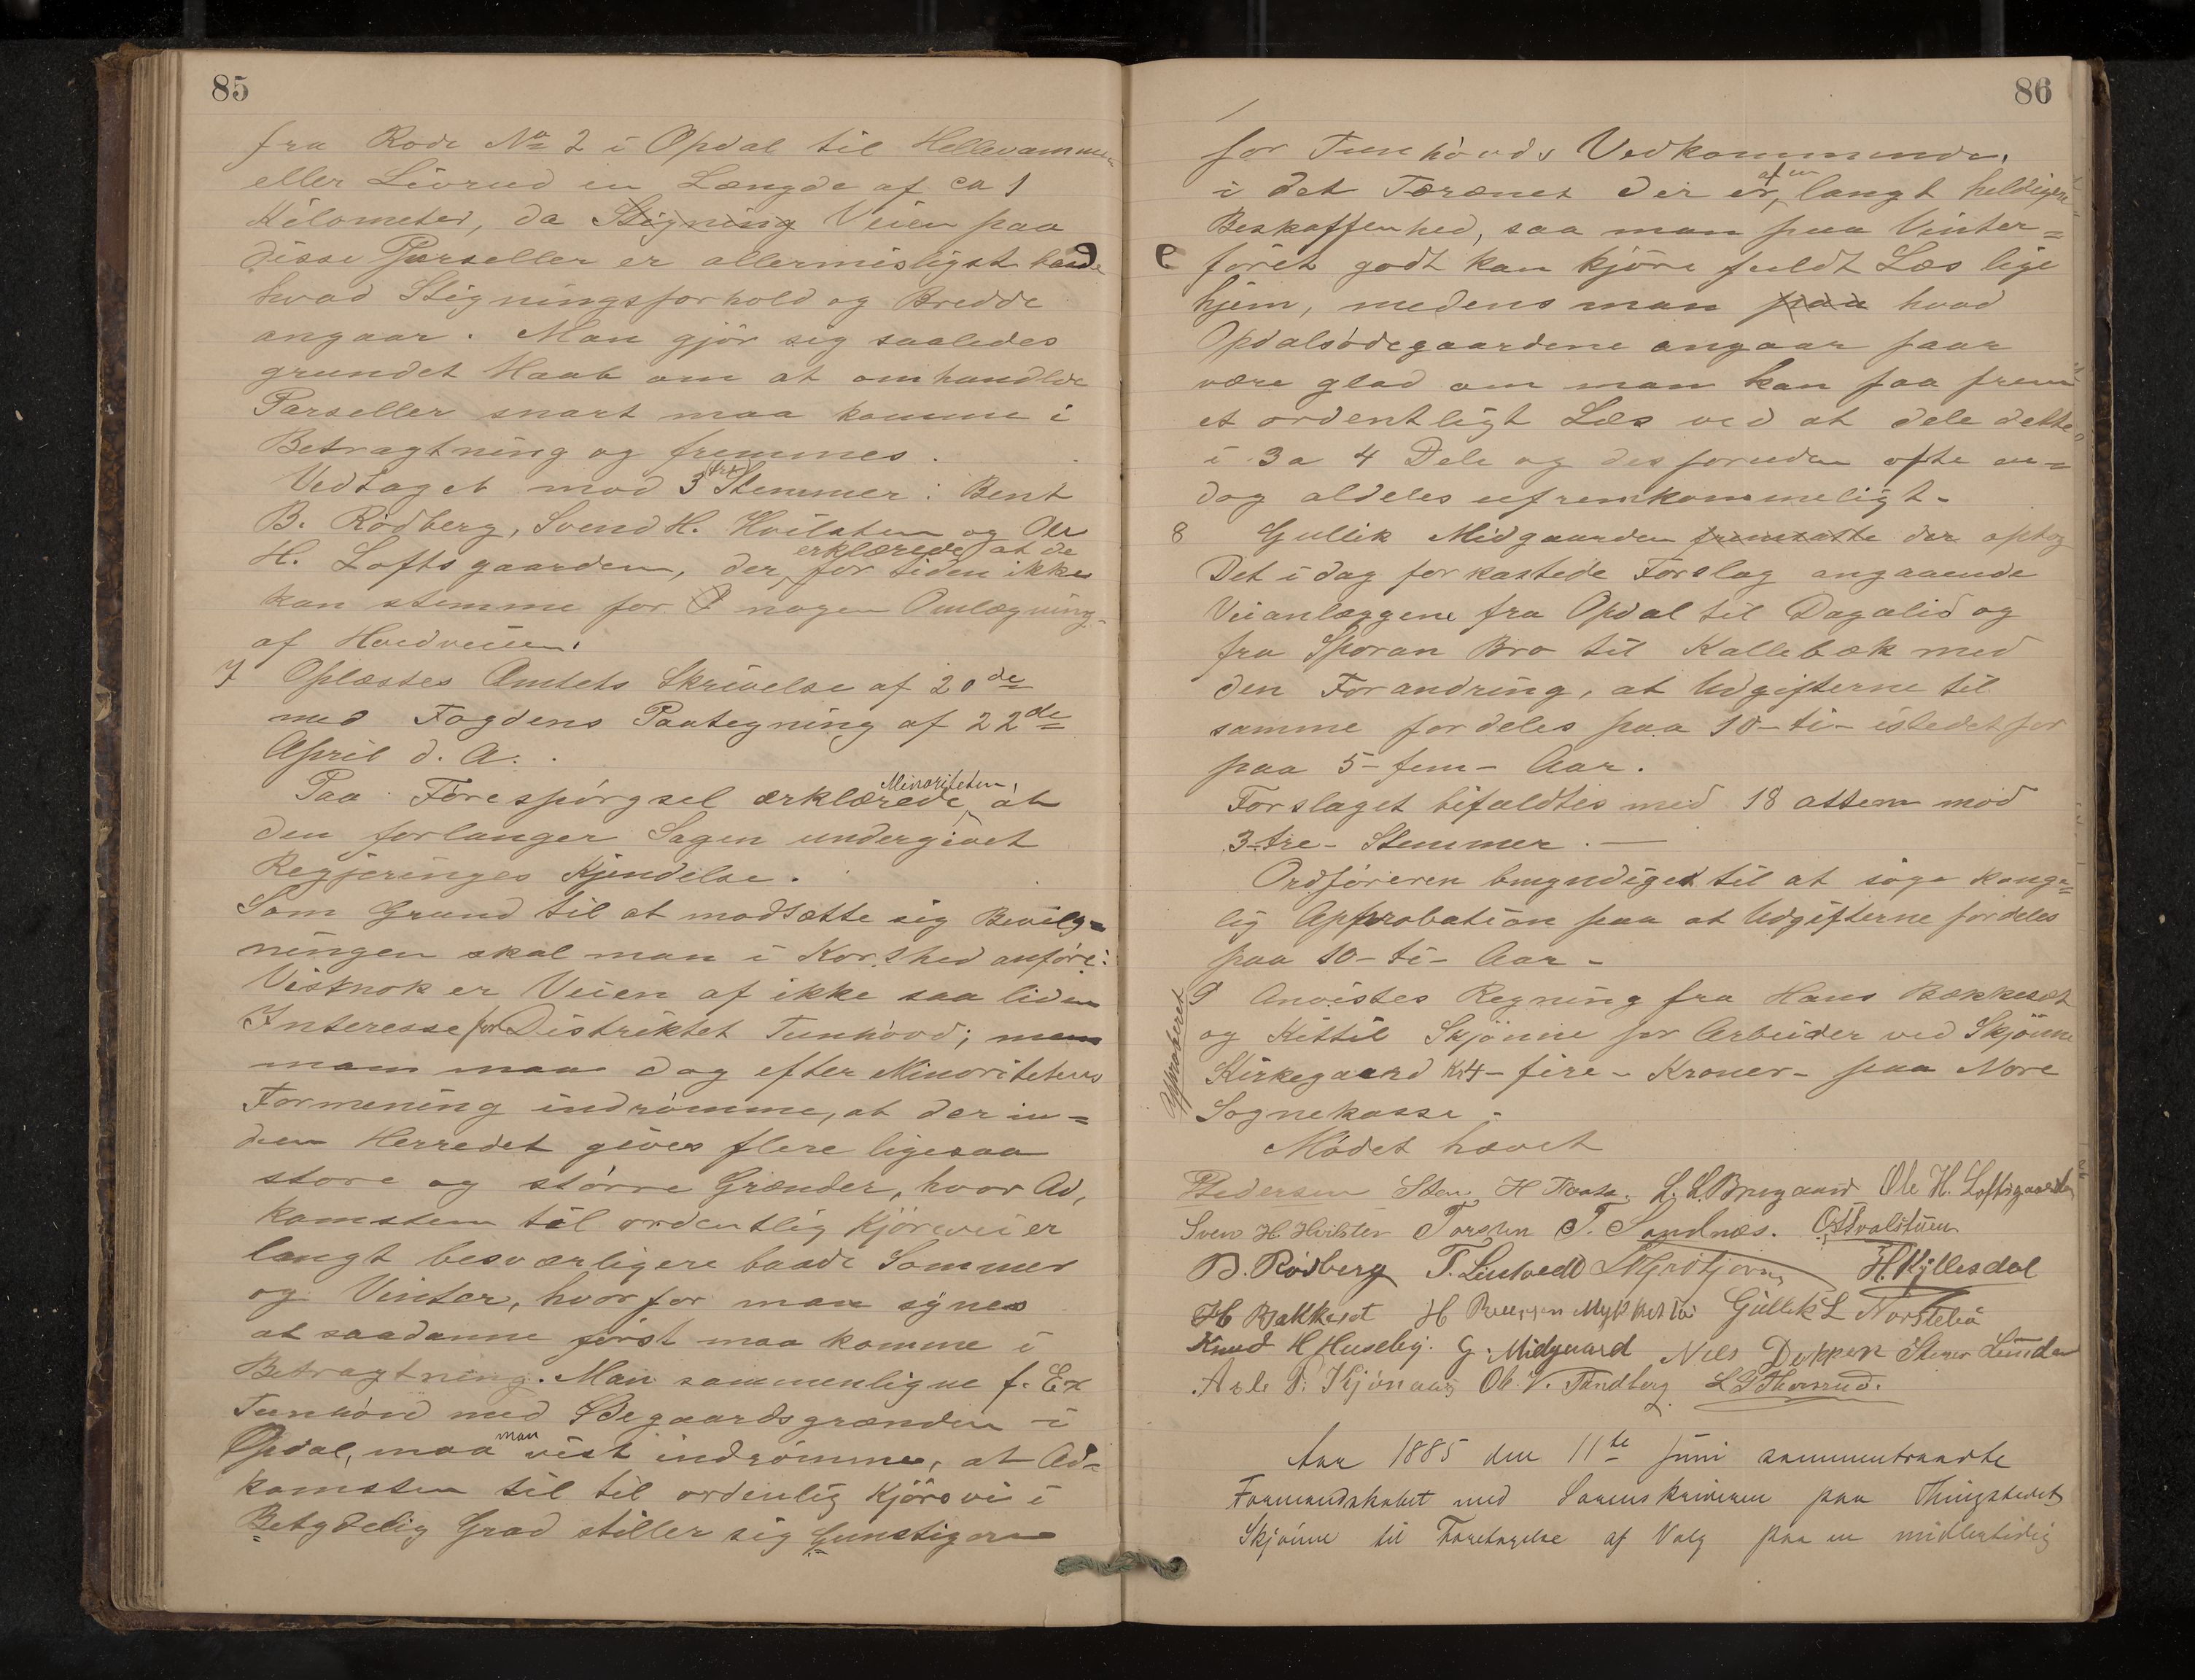 85
fra Rode No 2 i Opdal til Hellevamme-
eller Livrud en Længde af ca 1
Kilometer, da Stigning Veien paa
disse Parseller er allermisligst baade
hvad Stigningsforhold og Bredde
angaar. Man gjör sig saaledes
grundet Haab om at omhandlede
Parseller snart maa komme i
Betragtning og fremmes.
Vedtaget mod 3 tre Stemmer: Bent
B. Rödberg, Svend H. Hvilsten og Ole
H. Loftsgaarden, der erklærede at de for tiden ikke
kan stemme for nogen Omlægning
af Hovedveien.
7 Oplæstes Amtets Skrivelse af 20de
med Fogdens Paategning af 22de
April d. A.
Paa Forespörgsel erklærede Minoriteten, at
den forlanger Sagen undergivet
Regjeringes Kjendelse.
Som Grund til at modsætte sig Bevilg=
ningen skal man i Korthed anföre:
Vistnok er Veien af ikke saa liden
Interesse for Distriktet Tunhövd; men
man maa dog efter Minoritetens
Formening indrömme, at der in=
den Herredet gives flere ligesaa
store og större Grænder, hvor Ad,
komsten til ordentlig Kjörevei er
langt besværligere baade Sommer
og Vinter, hvorfor man synes
at saadanne först maa komme i
Betragtning. Man sammenligne f. Ex
Tunhövd med Ödegaardsgrænden i
Opdal, maa man vist indrömme, at Ad=
komsten til til ordenlig Kjörevei i
Betydelig Grad stiller sig Gunstigere
86
for Tunhövds Vedkommende,
i det Tærænet der er, af en langt heldigere
Beskaffenhed, saa man paa Vinter=
föret godt kan kjöre fuldt Læs lige
hjem, medens man paa hvad
Opdalsödegaardene angaar faar
være glad om man kan faa frem
et ordentligt Læs ved at dele dette
i 3 a 4 Dele og desforuden ofte en=
dog aldeles ufremkommeligt.
8 Gullik Midgaarden fremsatte der optog
Det i dag forkastede Forslag angaaende
Veianlæggene fra Opdal til Dagalid og
fra Sporan Bro til Kallebæk med
den Forandring, at Udgifterne til
samme fordeles paa 10-ti- istedetfor
paa 5-fem- Aar.
Forslaget bifaldtes med 18 atten mod
3-tre- Stemmer.
Ordföreren bmyndiget til at söge konge=
lig Approbation paa at Udgifterne fordeles
paa 10-ti- Aar-
Approberet
9 Anvistes Regning fra Hans Bækkeset
og Kittil Skjönne for Arbeider ved Skjönne
Kirkegaard Kr 4-fire- Kroner- paa Nore
Sognekasse.
Mödet hævet
Pedersen Sten H Traata. L. L. Brugaard Ole H. Loftsgaarden
Sven H Hvilsten Torsten T. Sandnæs.
B. Rödberg T. Liutvedt H. Kjllesdal
H Bækkeset H Myhkestö Gullik L Norsteliö
Knud H Huseby. G. Midgaard Nils Dokken Steiner Lunden
Asle P. Kjönaas Ole V. Tandberg
Aar 1885 den 11te Juni sammentraadte
Formandskabet med Sorenskriveren paa Thingstedet
Skjönne til Foretagelse af Valg paa en midlertidig